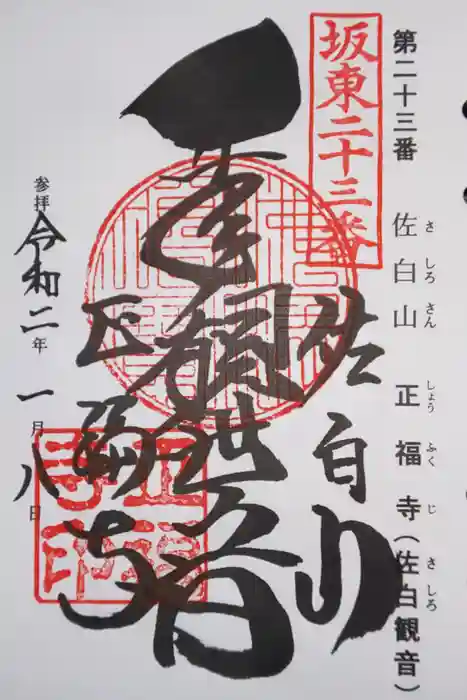 第二十三番 佐白山 正福寺(佐白観音)
さ しろ さん しょう ふく じ さ しろ
坂東二十三番
佐白山
観世音
正福寺
正福寺印
参拝 令和二年一月八日